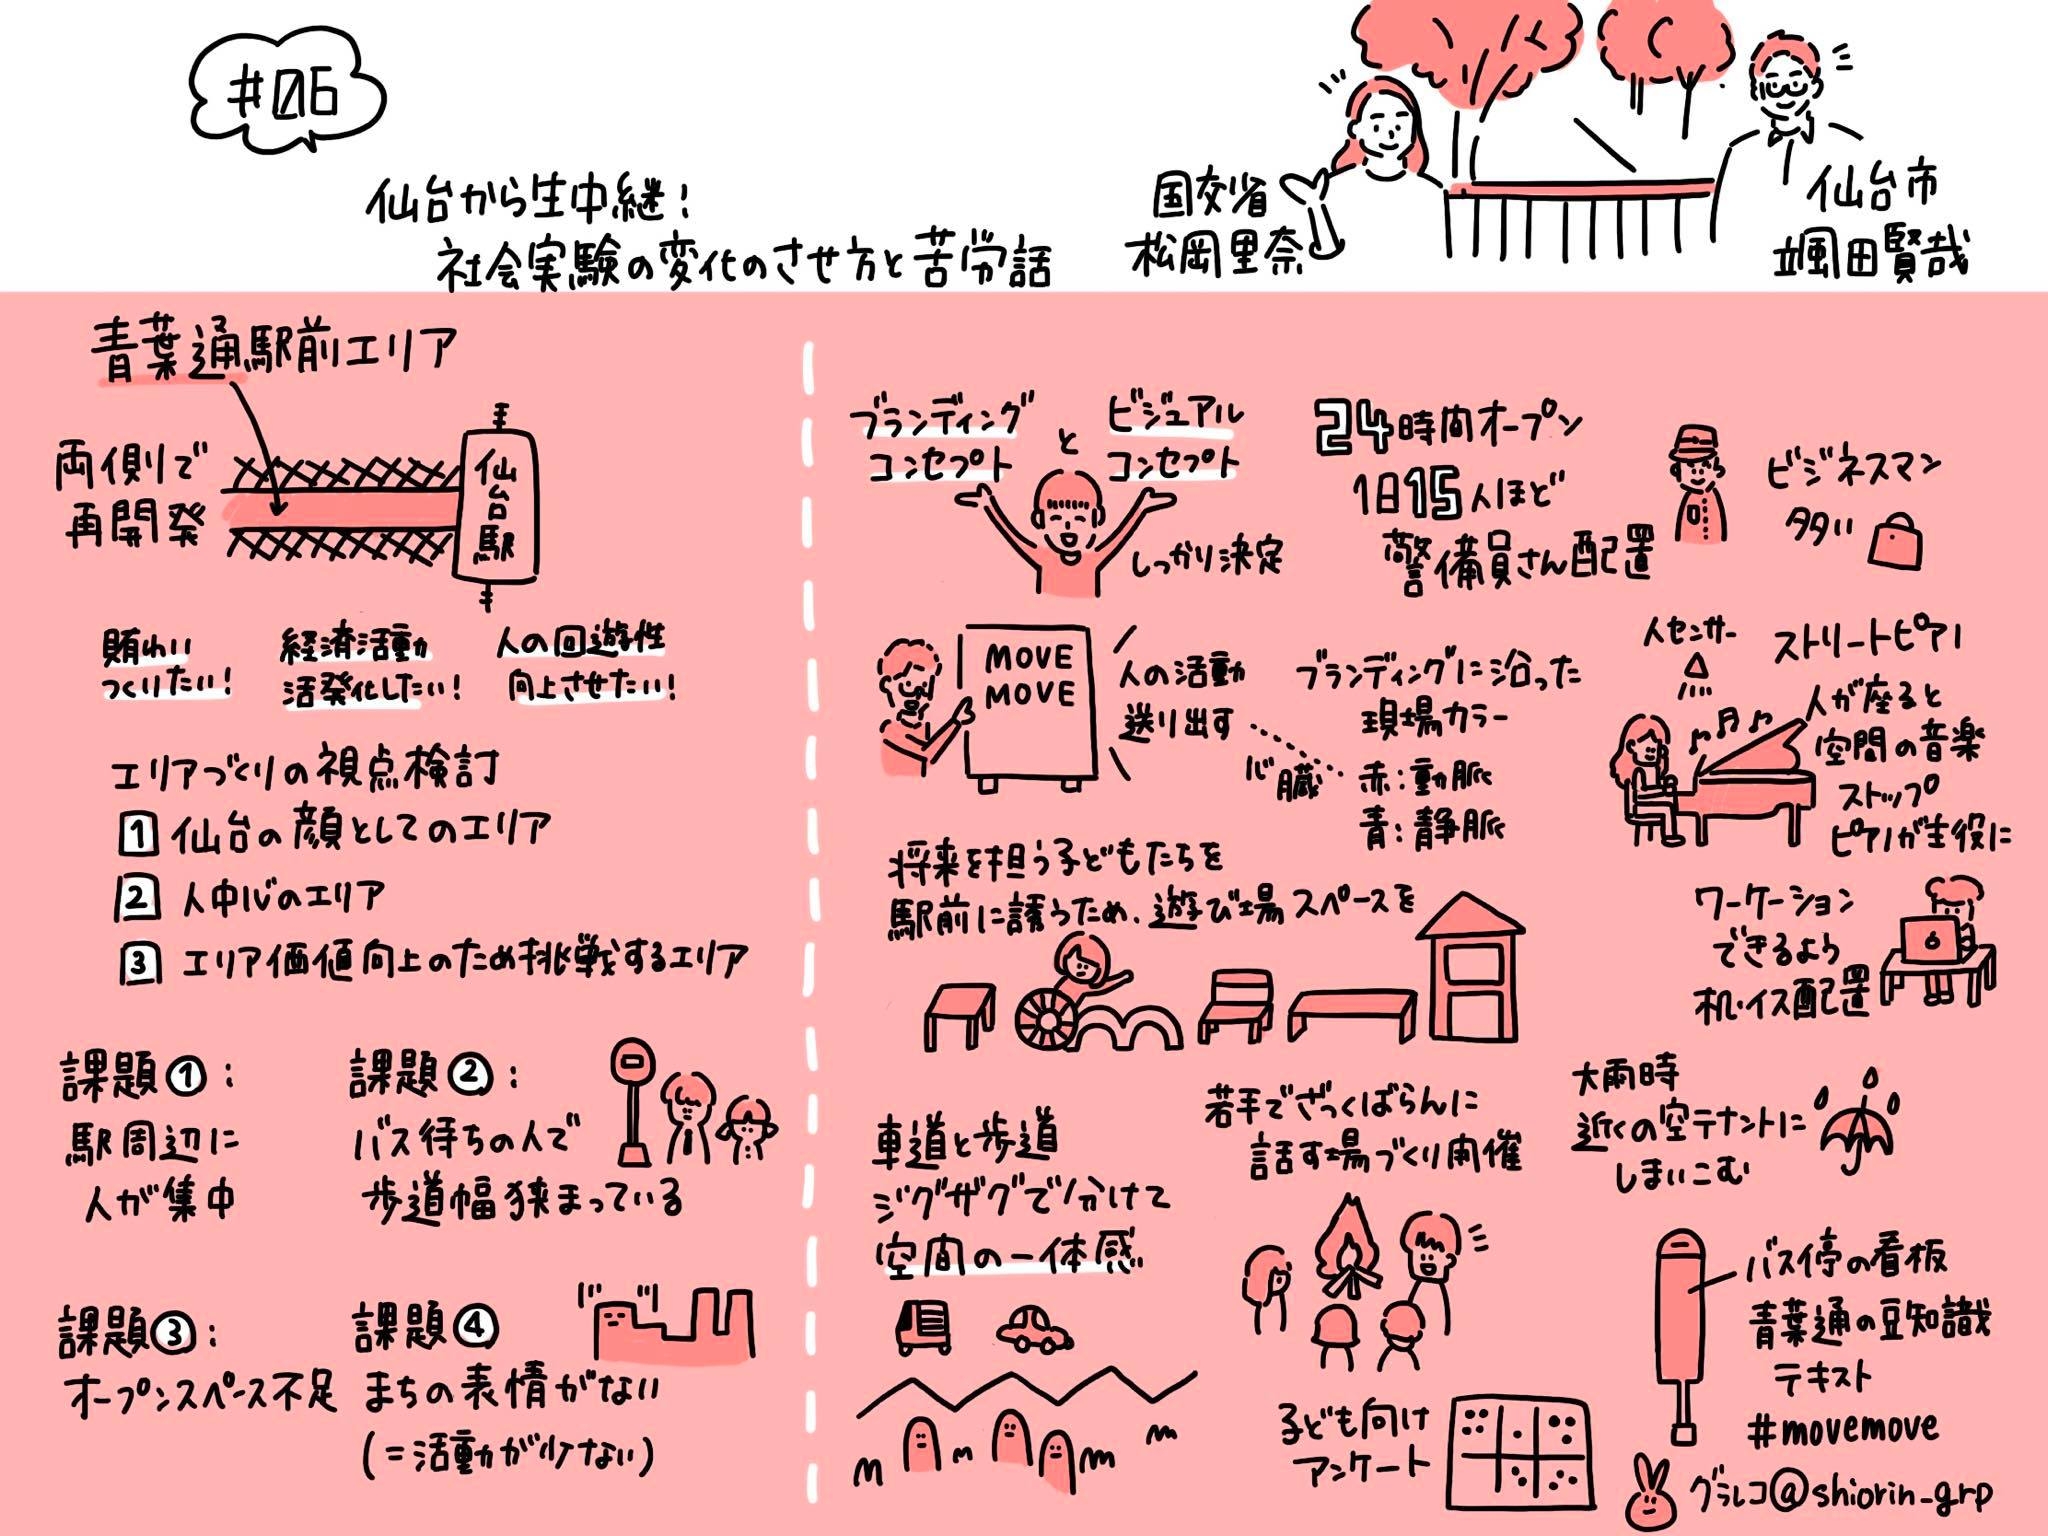 #06
仙台から生中継！
社会実験の変化のさせ方と苦労話
国交省
松岡里奈
仙台市
颯田賢哉
青葉通駅前エリア
両側で
再開発
仙台駅
賑わい
つくりたい！
経済活動
活発化したい！
人の回遊性
向上させたい！
エリアづくりの視点検討
1 仙台の顔としてのエリア
2 人中心のエリア
3 エリア価値向上のため挑戦するエリア
課題①：
駅周辺に
人が集中
課題②：
バス待ちの人で
歩道幅狭まっている
課題③：
オープンスペース不足
課題④
まちの表情がない
(＝活動が少ない)
ブランディング
コンセプト
と
ビジュアル
コンセプト
しっかり決定
24時間オープン
1日15人ほど
警備員さん配置
ビジネスマン
多い
MOVE
MOVE
人の活動
送り出す
心臓
ブランディングに沿った
現場カラー
赤：動脈
青：静脈
人センサー
ストリートピアノ
人が座ると
空間の音楽
ストップ
ピアノが主役に
将来を担う子どもたちを
駅前に誘うため、遊び場スペースを
ワーケーション
できるよう
机・イス配置
車道と歩道
ジグザグで分けて
空間の一体感
若手でざっくばらんに
話す場づくり開催
大雨時
近くの空テナントに
しまいこむ
子ども向け
アンケート
バス停の看板
青葉通の豆知識
テキスト
#movemove
グラレコ@shiorin_grp